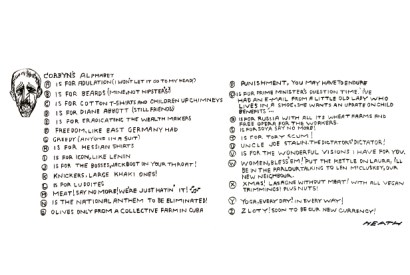 CORBYN'S ALPHABET
A IS FOR ADULATION (I WON'T LET IT GO TO MY HEAD)
B IS FOR BEARDS (MINE, NOT HIPSTER'S)
C IS FOR COTTON T-SHIRTS AND CHILDREN UP CHIMNEYS
D IS FOR DIANE ABBOTT (STILL FRIENDS)
E IS FOR ERADICATING THE WEALTH MAKERS
F FREEDOM, LIKE EAST GERMANY HAD
G GREEDY (ANYONE IN A SUIT)
H IS FOR HESSIAN SHIRTS
I IS FOR ICON, LIKE LENIN
J IS FOR THE BOSSES, JACKBOOT ON YOUR THROAT!
K KNICKERS, LARGE KHAKI ONES!
L IS FOR LUDDITES
M MEAT! SAY NO MORE! WE'RE JUST HATIN' IT!
N IS THE NATIONAL ANTHEM TO BE ELIMINATED!
O OLIVES ONLY FROM A COLLECTIVE FARM IN CUBA
P PUNISHMENT, YOU MAY HAVE TO ENDURE
Q IS FOR PRIME MINISTER'S QUESTION TIME. I'VE
HAD AN E-MAIL FROM A LITTLE OLD LADY WHO
LIVES IN A SHOE, SHE WANTS AN UPDATE ON CHILD
BENEFITS
R IS FOR RUSSIA WITH ALL ITS WHEAT FARMS AND
FREE OPERA FOR THE WORKERS
S IS FOR SOYA SAY NO MORE!
T IS FOR TORY SCUM!
U UNCLE JOE STALIN. THE DICTATOR'S DICTATOR!
V IS FOR THE WONDERFUL VISIONS I HAVE FOR YOU,
W WOMEN, BLESS 'EM! PUT THE KETTLE ON LAURA, I'LL
BE IN THE PARLOUR TALKING TO LEN McCLUSKEY, OUR
NEW NEIGHBOUR.
X XMAS! LASAGNE WITHOUT MEAT! WITH ALL VEGAN
TRIMMINGS! PLUS NUTS!
Y YOGA, EVERY DAY! IN EVERY WAY!
Z ZLOTY! SOON TO BE OUR NEW CURRENCY!
HEATH